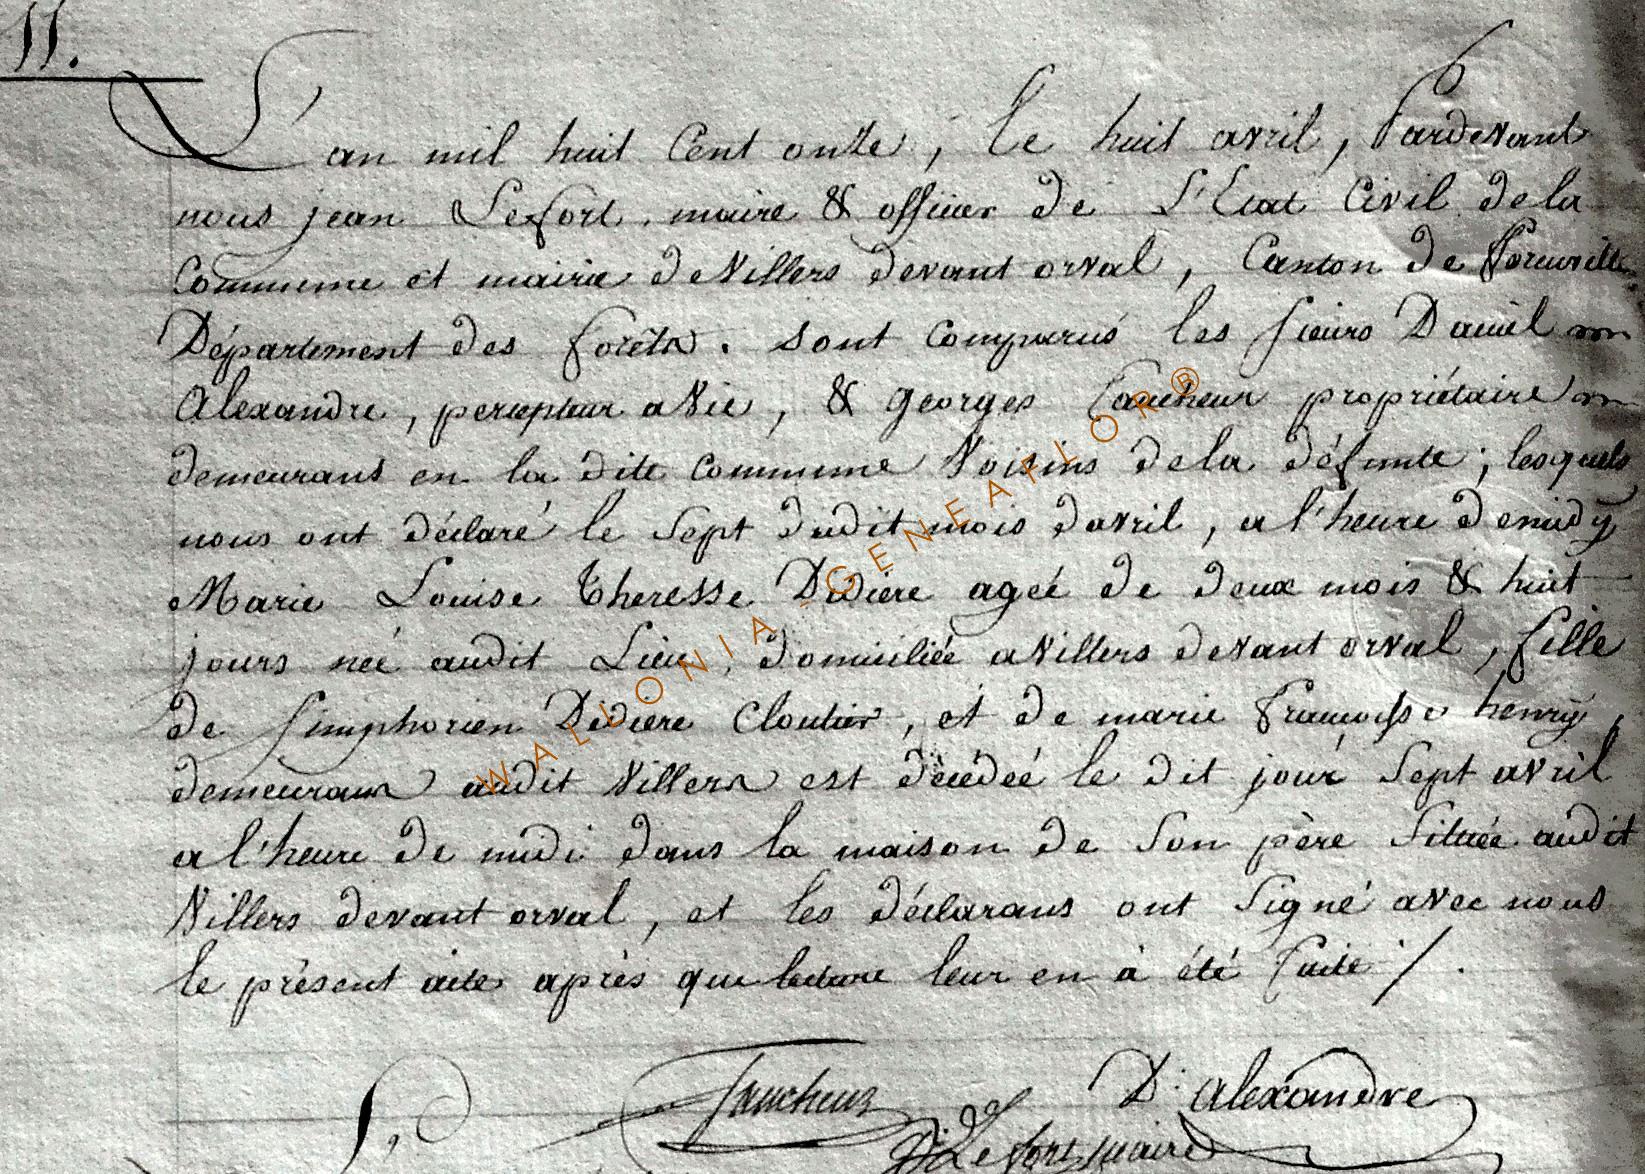 11.
L'an mil huit Cent onze, le huit avril, Pardevant
nous jean Lefort, maire & officier de L'Etat Civil de la
Commune et mairie de Villers devant orval, Canton de
Département des forêts. Sont Comparus les sieurs Daniel
Alexandre, percepteur a Vie, & georges faucheur propriétaire
demeurans en la dite Commune Voisins de la défunte; lesquels
nous ont déclaré le Sept dudit mois davril, a l'heure demidy
Marie Louise Theresse Didiere ageé de deux mois & huit
jours neé audit Lieu, domiciliée a Villers devant orval, fille
de simphorien Didiere Cloutier, et de marie françoisse henrÿ,
demeurans audit Villers est décédeé le dit jour Sept avril
a l'heure de midi dans la maison de Son père Située audit
Villers devant orval, et les déclarans ont Signé avec nous
le présent acte après que lecture leur en à été faite /.
faucheur
D. alexandre
Lefort maire
L,
WALLONIA-GENEAFLOR®